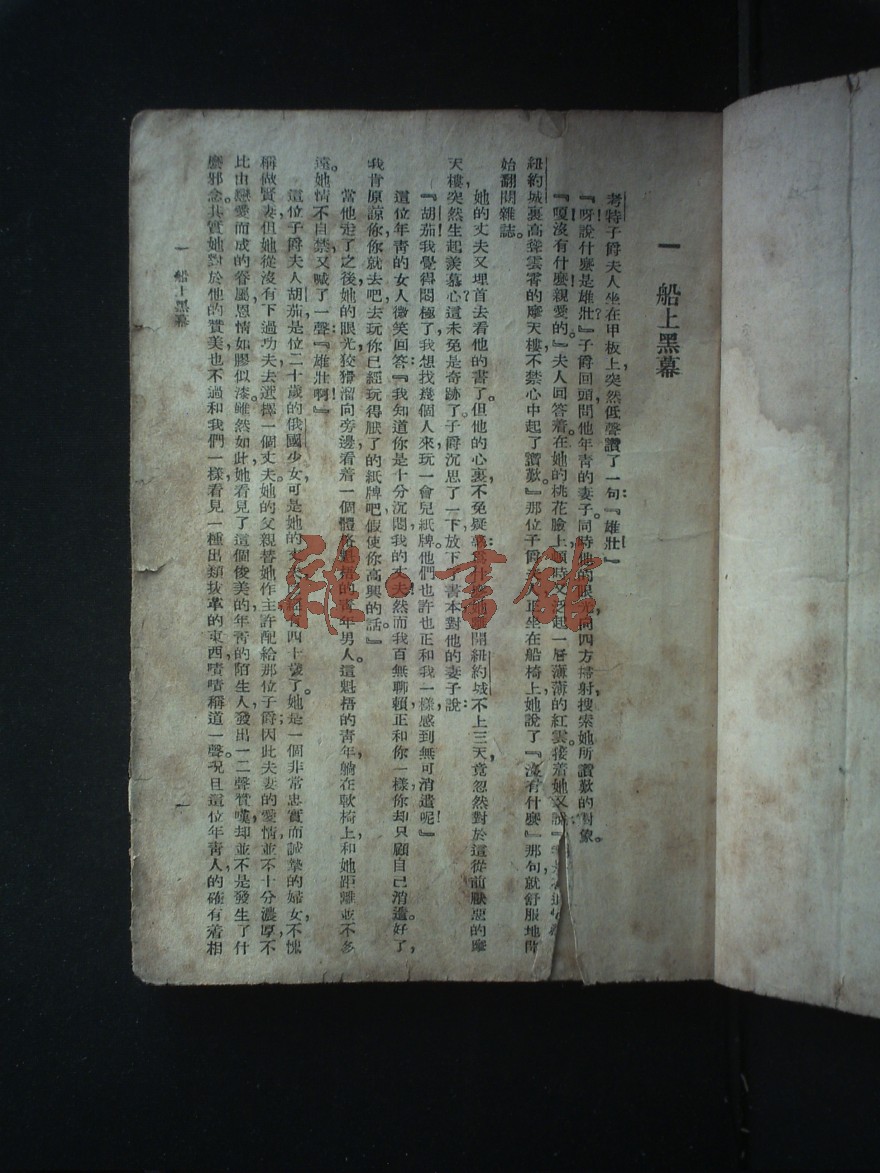 一　船上黑幕
考特子爵夫人坐在甲板上，突然低聲讚了一句：『雄壯！』
『呀！說什麼是雄壯？』子爵回頭問他年青的妻子。同時他的眼光向四方掃射，搜索她所讚歎的對象。
『嗄！沒有什麼，親愛的。』夫人回答着。在她的桃花臉上，頓時又泛起一層薄薄的紅雲。接着她又說：
紐約城裏高聳雲霄的摩天樓，不禁心中起了讚歎。』那位子爵夫人正坐在船椅上，她說了『沒有什麼』那句，就舒服地開
始翻閱雜誌。
她的丈夫又埋首去看他的書了。但他的心裏，不免疑惑：爲什麼她離開紐約城不上三天，竟忽然對於這從前厭惡的摩
天樓，突然生起羨慕心？這未免是奇跡了。子爵沉思了一下，放下了書本，對他的妻子說：
『胡茄，我覺得悶極了，我想找幾個人來玩一會兒紙牌。他們也許也正和我一樣感到無可消遣呢！』
這位年青的女人微笑回答：『我知道你是十分沉悶，我的丈夫，然而我百無聊賴，正和你一樣，你却只顧自己消遣。好了，
我肯原諒你，你就去吧！去玩你已經玩得厭了的紙牌吧，假使你高興的話。』
當他走了之後，她的眼光狡猾溜向旁邊，看着一個體格魁梧的青年男人。這魁梧的青年，躺在軟椅上，和她距離並不多
遠。她情不自禁，又喊了一聲：『雄壯啊！』
這位子爵夫人胡茄，是位二十歲的俄國少女，可是她的丈夫已經有四十歲了。她是一個非常忠實而誠摯的婦女，不愧
稱做賢妻，但她從沒有下過功夫去選擇一個丈夫。她的父親替她作主許配給那位子爵；因此夫妻的愛情並不十分濃厚，不
比由戀愛而成的眷屬，恩情如膠似漆。雖然如此，她看見了這個俊美的年青的陌生人，發出一二聲贊嘆，却並不是發生了什
麼邪念。其實她對於他的贊美，也不過和我們一樣，看見一種出類拔萃的東西，嘖嘖稱道一聲。況且這位年靑人的確有着相
一　船上黑幕
一
雜·書館